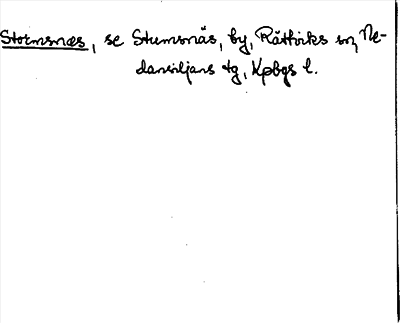 Stormsnæs, se Stumsnäs, by, Rättviks sn, Ne-
dansiljans tg, Kpbgs l.